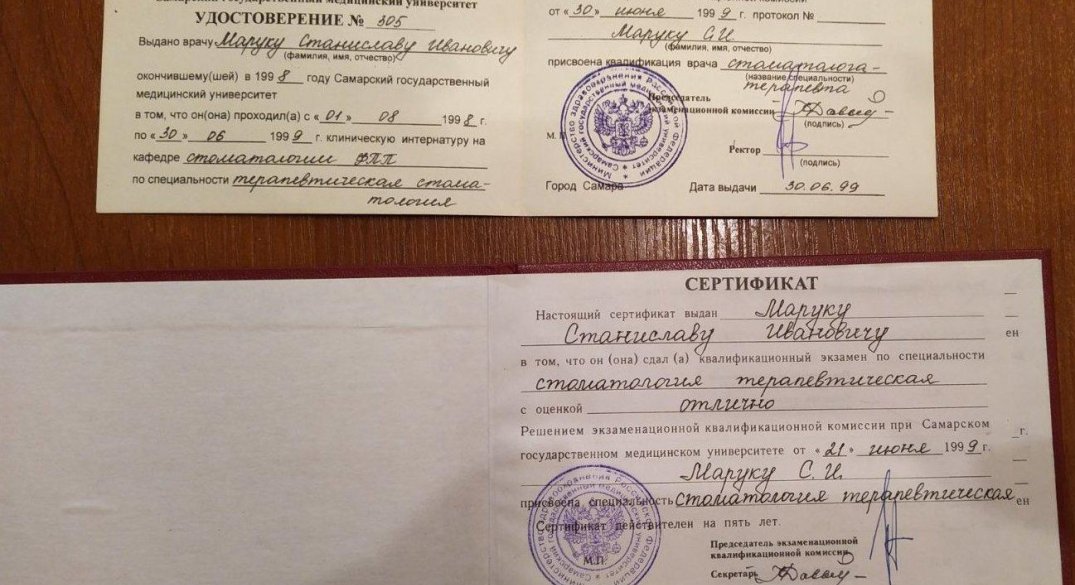 Самарский государственный медицинский университет
УДОСТОВЕРЕНИЕ № 305
Выдано врачу Маруку Станиславу Ивановичу
(фамилия, имя, отчество)
окончившему(шей) в 1998 году Самарский государственный
медицинский университет
в том, что он(она) проходил(а) с «01» 08 1998 г.
по «30» 06 1999 г. клиническую интернатуру на
кафедре стоматологии ФПП
по специальности терапевтическая стома-
тология
от «30» июня 1999 г. протокол №
Маруку С.И.
(фамилия, имя, отчество)
присвоена квалификация врача стоматолога-
(название специальности)
терапевта
Председатель
экзаменационной комиссии
(подпись)
М.
Ректор
(подпись)
Город Самара Дата выдачи 30.06.99
Министерство здравоохранения Российской Федерации
Самарский государственный медицинский университет
СЕРТИФИКАТ
Настоящий сертификат выдан Маруку
Станиславу Ивановичу
ен
в том, что он (она) сдал (а) квалификационный экзамен по специальности
стоматология терапевтическая
с оценкой отлично
Решением экзаменационной квалификационной комиссии при Самарском
г.
государственном медицинском университете от «21» июня 1999 г.
Маруку С. И.
присвоена специальность стоматология терапевтическая
ен
Сертификат действителен на пять лет.
Председатель экзаменационной
квалификационной комиссии
М.П.
Секретарь